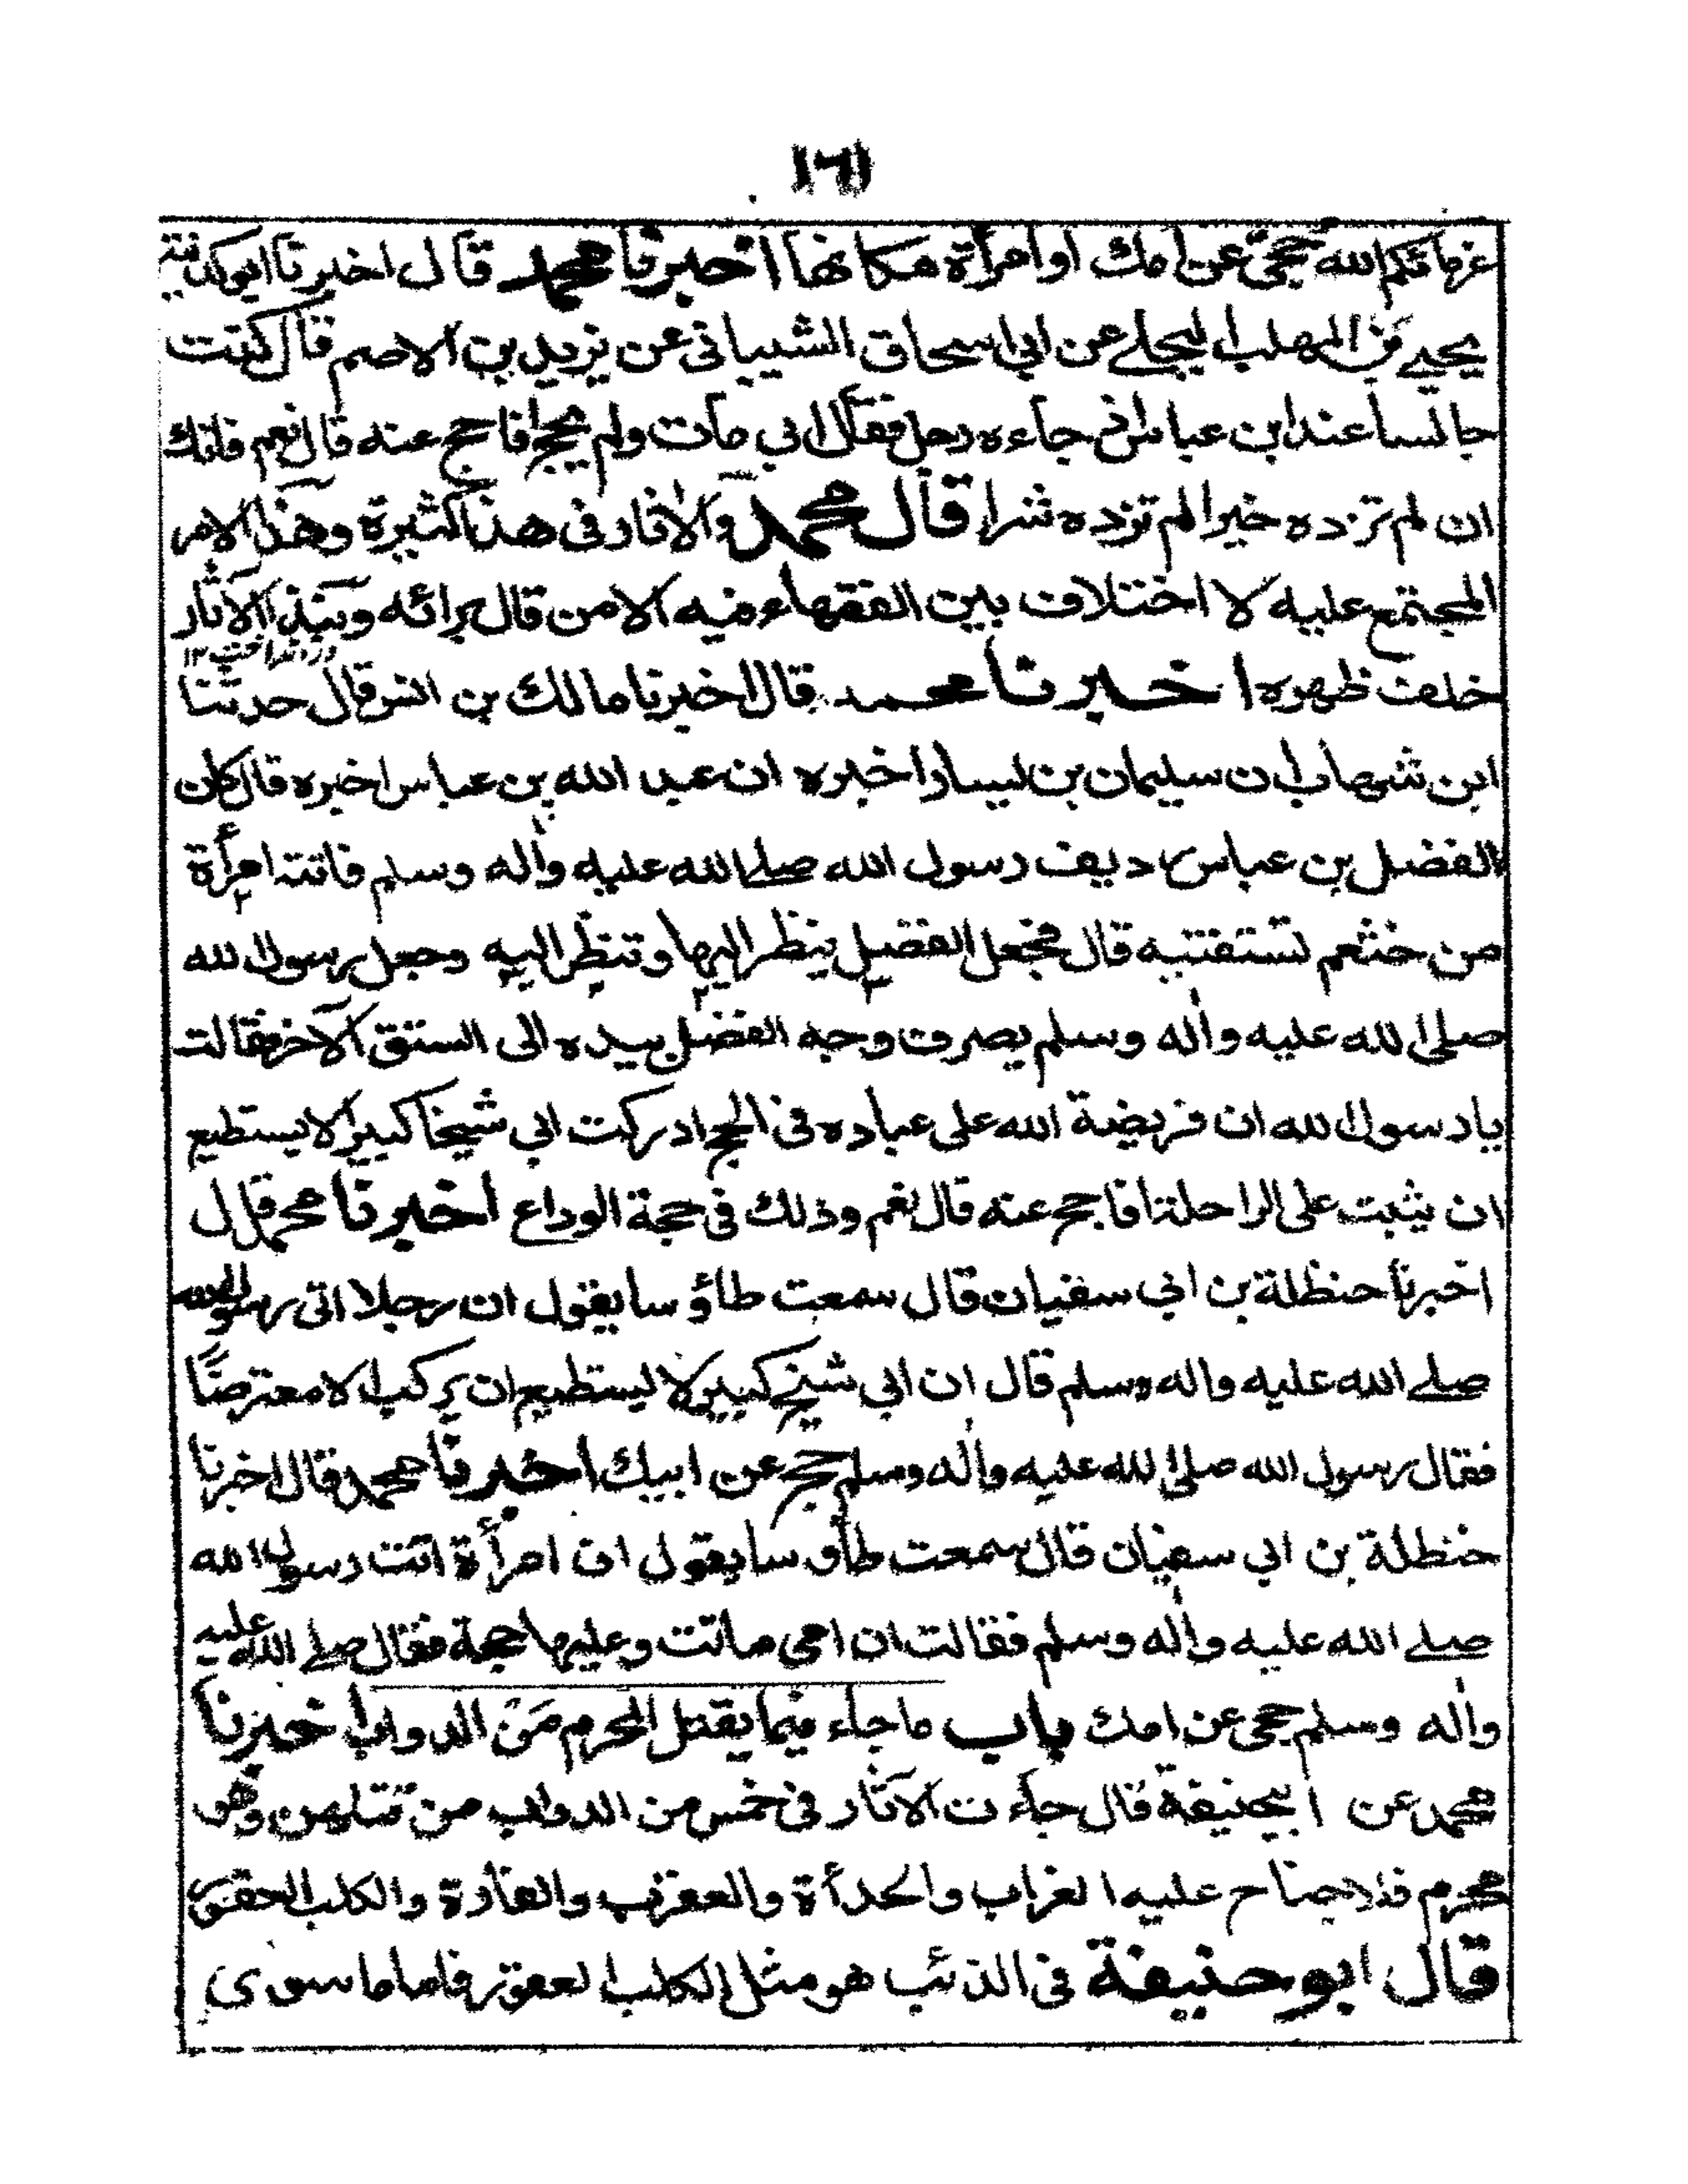 ١٦١
غرمائكم الله حجي عن امك او امرأة مكانها اخبرنا محمد قال اخبرنا ابو كدينة
يحيے بن المهلب البجلے عن ابي اسحاق الشيباني عن يزيد بن الاصم قال كنت
جالسا عند ابن عباس فجاءه رجل فقال ابي مات ولم يحج افاحج عنه قال نعم فانك
ان لم تزده خيرا لم تزده شرا قال محمد والآثار في هذا كثيرة وهذا الامر
المجتمع عليه لا اختلاف بين الفقهاء فيه الا من قال برائه ونبذ الآثار
خلف ظهره اخبرنا محمد قال اخبرنا مالك بن انس قال حدثنا
ابن شهاب ان سليمان بن يسار اخبره ان عبد الله بن عباس اخبره قال كان
الفضل بن عباس رديف رسول الله صلے الله عليه واٰله وسلم فاتته امرأة
من خثعم تستفتيه قال فجعل الفضل ينظر اليها وتنظر اليه وجعل رسول الله
صلى الله عليه واٰله وسلم يصرف وجه الفضل بيده الى الشق الآخر فقالت
يا رسول الله ان فريضة الله على عباده في الحج ادركت ابي شيخا كبيرا لا يستطيع
ان يثبت على الراحلة افاحج عنه قال نعم وذلك في حجة الوداع اخبرنا محمد قال
اخبرنا حنظلة بن ابي سفيان قال سمعت طاؤسا يقول ان رجلا اتى رسول الله
صلے الله عليه واله وسلم قال ان ابي شيخ كبير لا يستطيع ان يركب الا معترضًا
فقال رسول الله صلى الله عليه واٰله وسلم حج عن ابيك اخبرنا محمد قال اخبرنا
حنظلة بن ابي سفيان قال سمعت طاؤسا يقول ان امرأة اتت رسول الله
صلے الله عليه واٰله وسلم فقالت ان امي ماتت وعليها حجة فقال صلے الله عليه
واٰله وسلم حجي عن امك باب ما جاء فيما يقتل المحرم من الدواب اخبرنا
محمد عن ابيحنيفة قال جاءت الآثار في خمس من الدواب من قتلهن وهو
محرم فلا جناح عليه الغراب والحدأة والعقرب والفأرة والكلب العقور
قال ابو حنيفة في الذئب هو مثل الكلب العقور فاما ما سوى